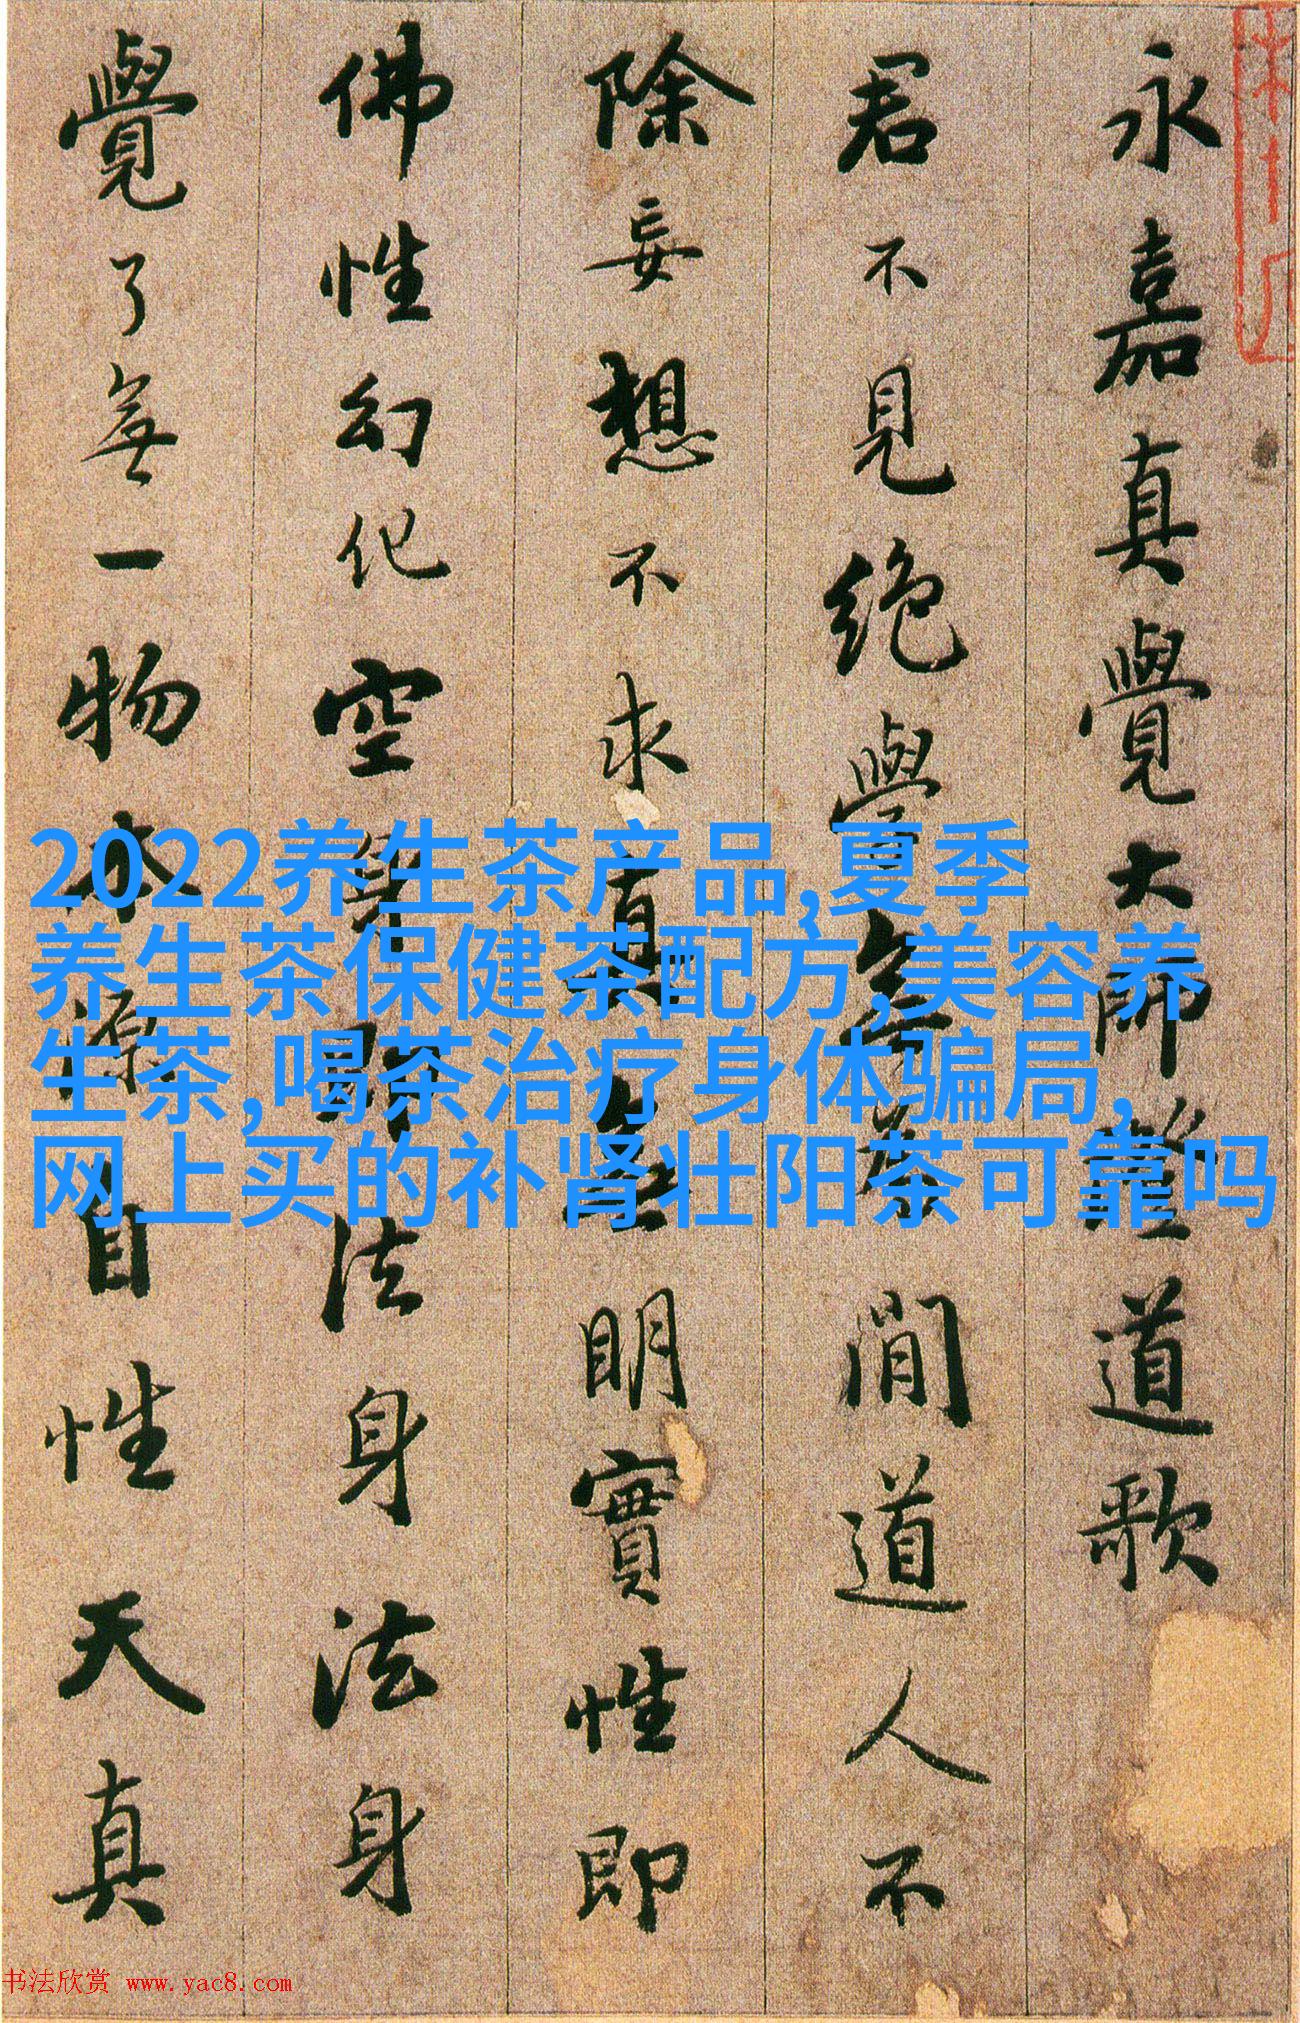 永嘉真覺大師證道歌
君不見絕學無為閒道人不
除妄想不求真無明實性即
佛性幻化空身即法身法身
覺了無一物本源自性天真
2022养生茶产品,夏季
养生茶保健茶配方,美容养
生茶,喝茶治疗身体骗局,
网上买的补肾壮阳茶可靠吗
书法欣赏 www.yac8.com